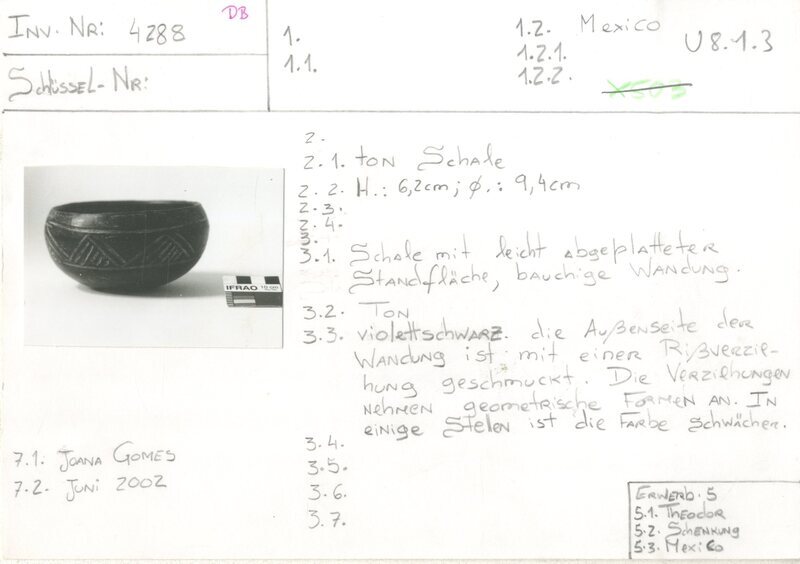 INV. NR: 4288
DB
SCHLÜSSEL-NR:
1.
1.1.
1.2. MEXICO
1.2.1.
1.2.2.
U8.1.3
X503
2.
2.1. TON SCHALE
2.2. H.: 6,2cm; Ø.: 9,4cm
2.3.
2.4.
3.
3.1. SCHALE MIT LEICHT ABGEPLATTETER
STANDFLÄCHE, BAUCHIGE WANDUNG.
3.2. TON
3.3. VIOLETTSCHWARZ. DIE AUßENSEITE DER
WANDUNG IST MIT EINER RIßVERZIE-
HUNG GESCHMUCKT. DIE VERZIEHUNGEN
NEHMEN GEOMETRISCHE FORMEN AN. IN
EINIGE STELEN IST DIE FARBE SCHWÄCHER.
3.4.
3.5.
3.6.
3.7.
IFRAO
7.1. JOANA GOMES
7.2. JUNI 2002
ERWERB. 5
5.1. THEODOR
5.2. SCHENKUNG
5.3. MEXICO